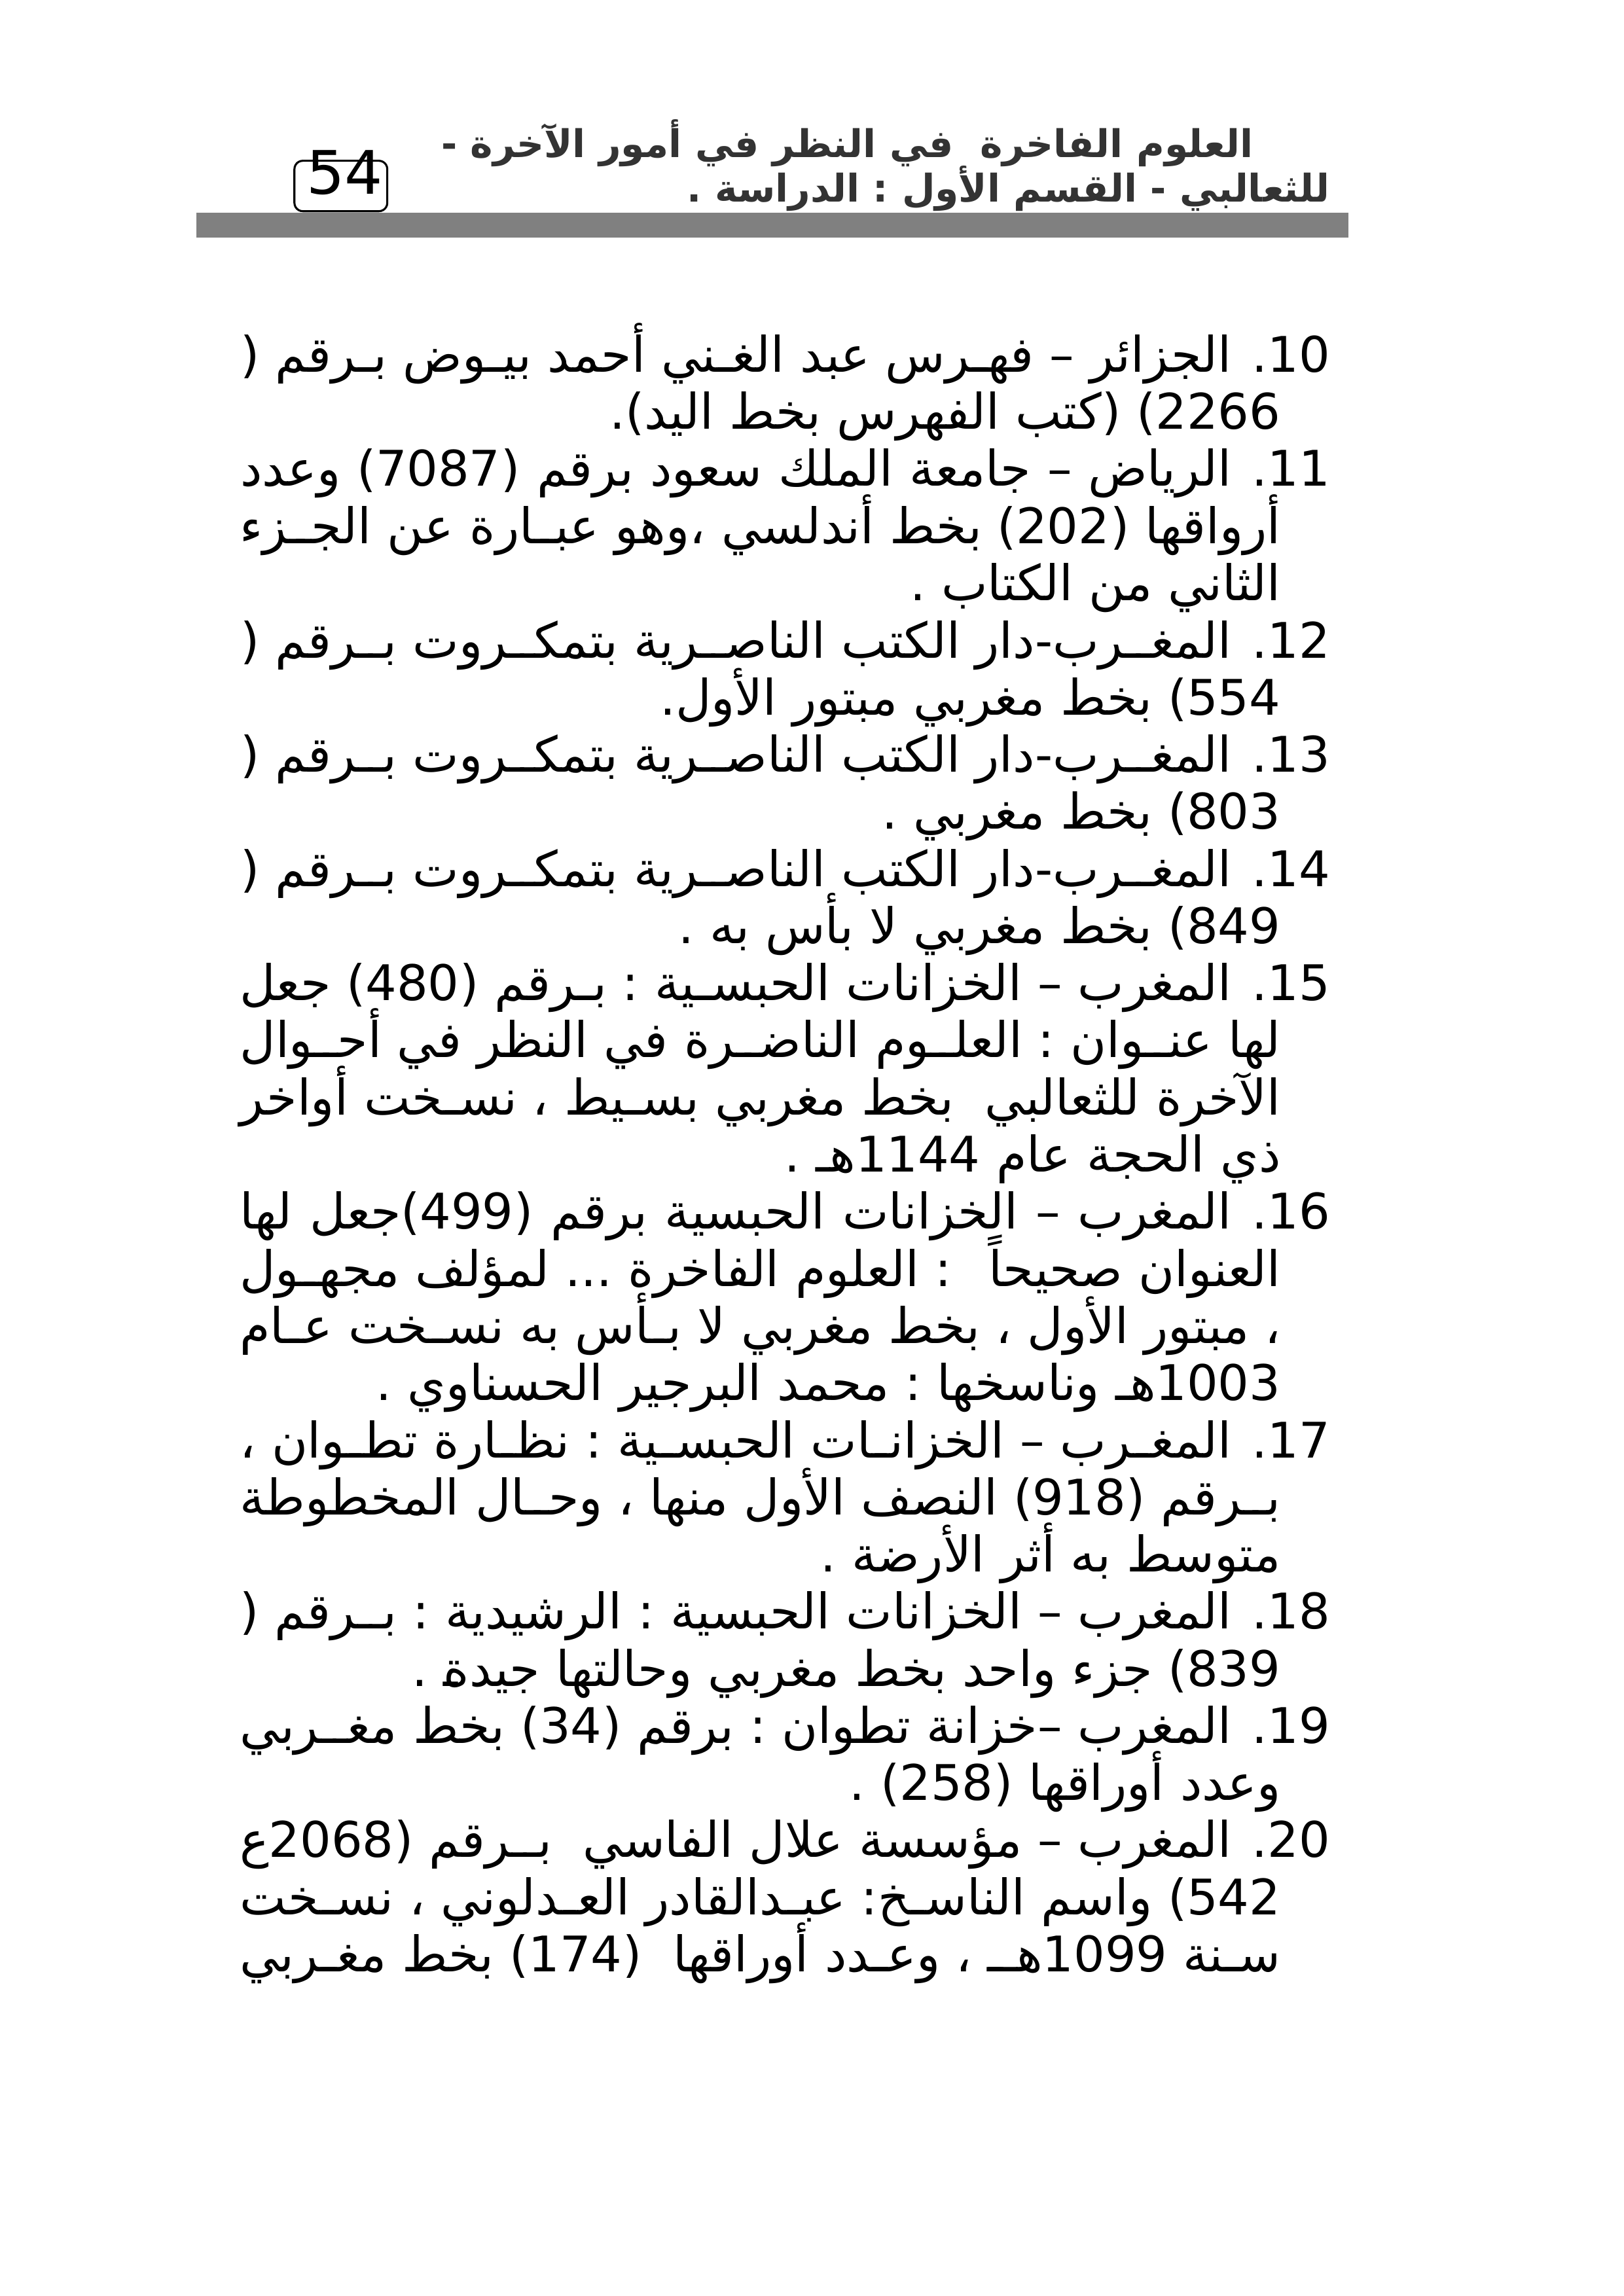 العلوم الفاخرة في النظر في أمور الآخرة -
للثعالبي - القسم الأول : الدراسة .
54
10. الجزائر – فهرس عبد الغني أحمد بيوض برقم (
2266) (كتب الفهرس بخط اليد).
11. الرياض – جامعة الملك سعود برقم (7087) وعدد
أرواقها (202) بخط أندلسي ،وهو عبارة عن الجزء
الثاني من الكتاب .
12. المغرب-دار الكتب الناصرية بتمكروت برقم (
554) بخط مغربي مبتور الأول.
13. المغرب-دار الكتب الناصرية بتمكروت برقم (
803) بخط مغربي .
14. المغرب-دار الكتب الناصرية بتمكروت برقم (
849) بخط مغربي لا بأس به .
15. المغرب – الخزانات الحبسية : برقم (480) جعل
لها عنوان : العلوم الناضرة في النظر في أحوال
الآخرة للثعالبي بخط مغربي بسيط ، نسخت أواخر
ذي الحجة عام 1144هـ .
16. المغرب – الخزانات الحبسية برقم (499)جعل لها
العنوان صحيحاً : العلوم الفاخرة ... لمؤلف مجهول
، مبتور الأول ، بخط مغربي لا بأس به نسخت عام
1003هـ وناسخها : محمد البرجير الحسناوي .
17. المغرب – الخزانات الحبسية : نظارة تطوان ،
برقم (918) النصف الأول منها ، وحال المخطوطة
متوسط به أثر الأرضة .
18. المغرب – الخزانات الحبسية : الرشيدية : برقم (
839) جزء واحد بخط مغربي وحالتها جيدة .
19. المغرب –خزانة تطوان : برقم (34) بخط مغربي
وعدد أوراقها (258) .
20. المغرب – مؤسسة علال الفاسي برقم (2068ع
542) واسم الناسخ: عبدالقادر العدلوني ، نسخت
سنة 1099هـ ، وعدد أوراقها (174) بخط مغربي